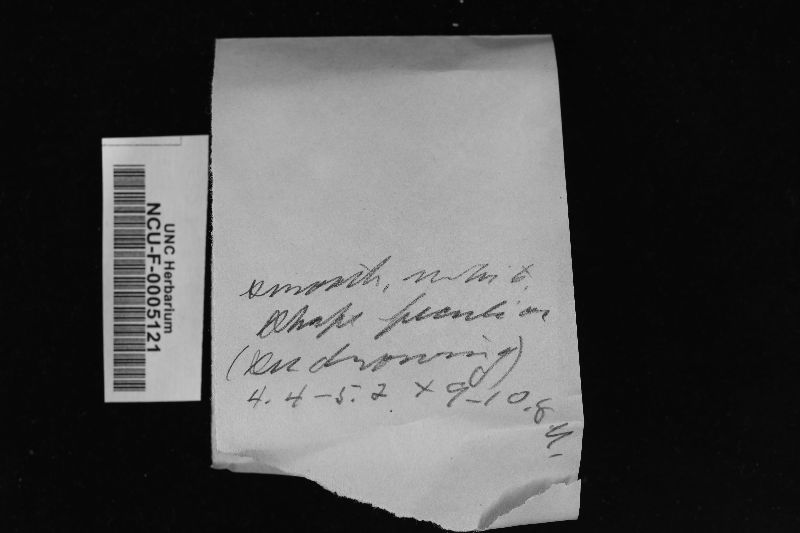 UNC Herbarium
NCU-F-0005121
smooth, white,
Shape peculiar
(see drawing)
4.4-5.2 x 9-10.8 µ.